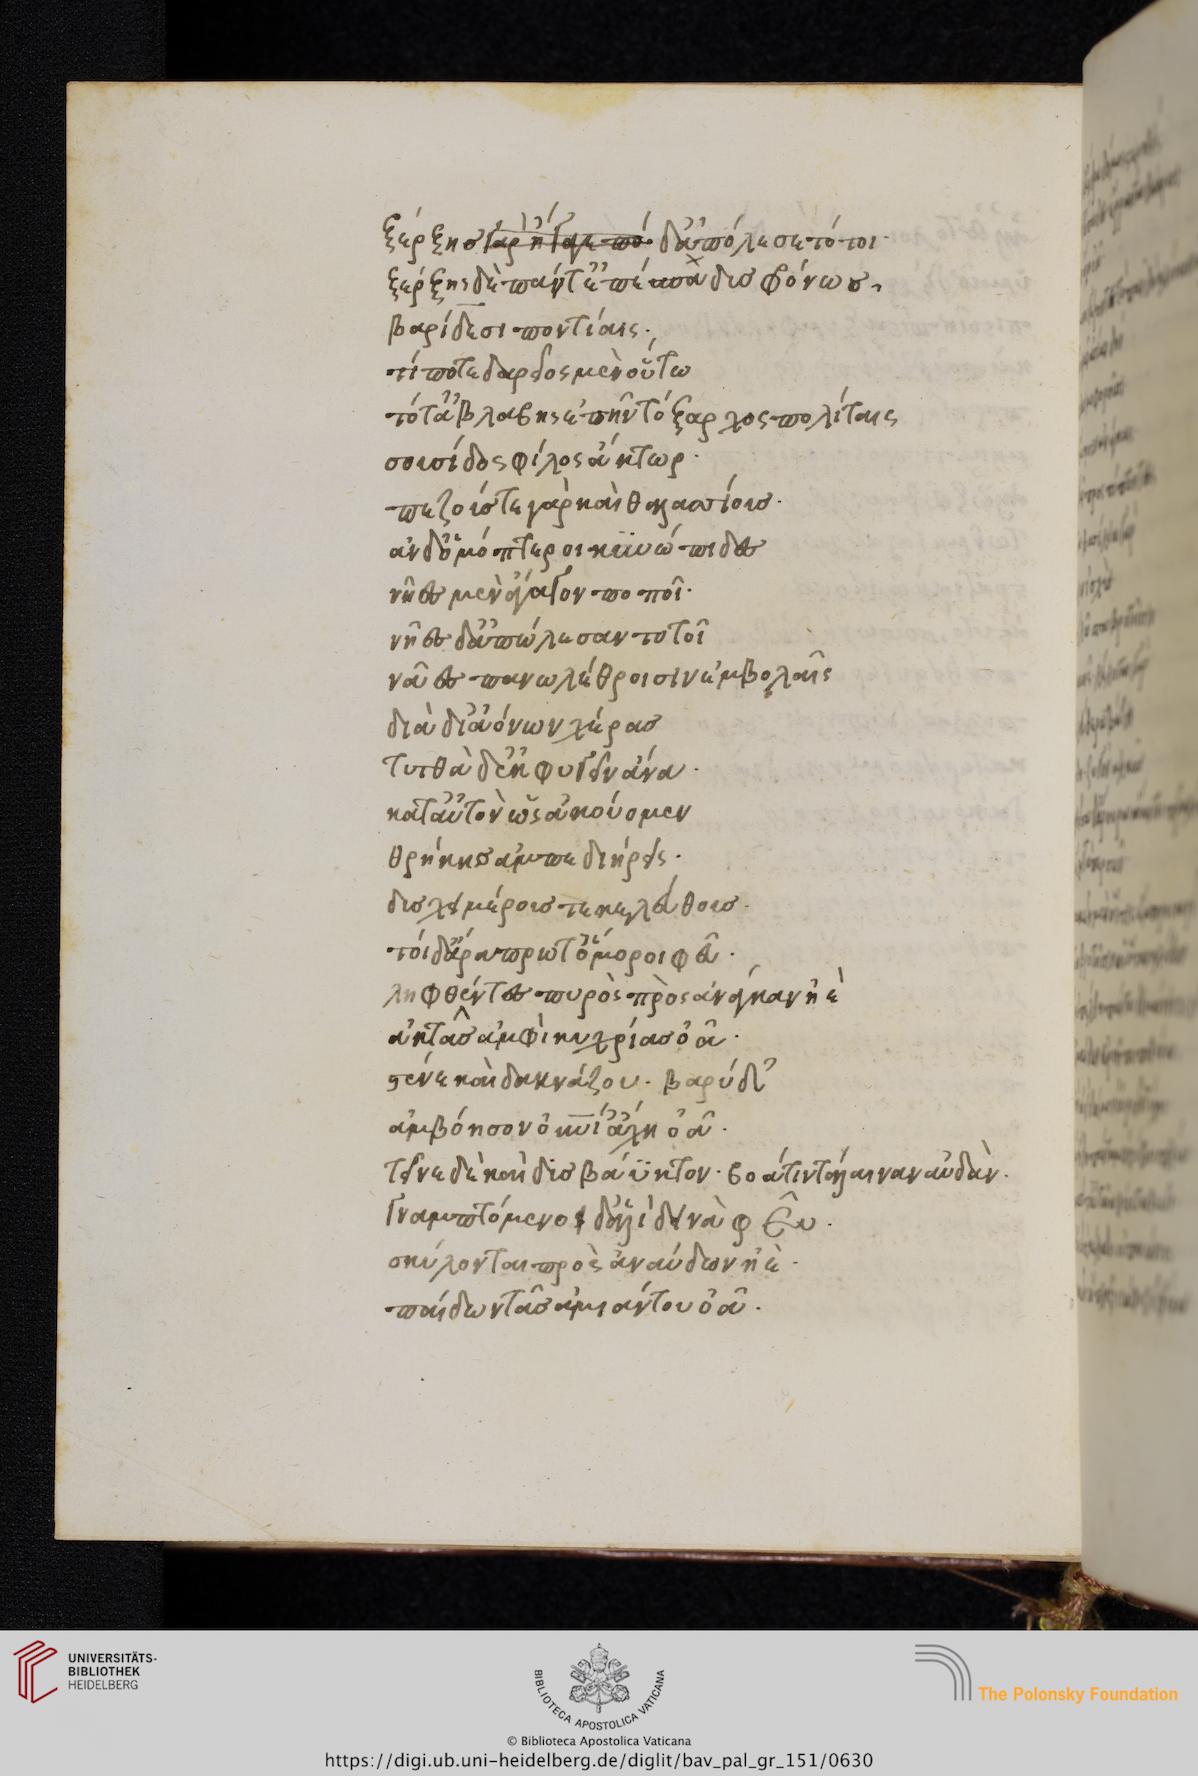 ξέρξησ γὰρ ἤγαγε ποποῖ δ᾽ ἀπόλεσε τότοι·
ξέρξης δὲ πάντ᾽ ἐπέσπα δισφόνωσ,
βαρίδεσι ποντίαις·
τίποτε δαρεῖος μὲν οὕτω
τότ᾽ ἀβλαβης ἐπῆν τόξαρχος πολίταις
σουσίδος φίλος ἄκτωρ·
πεζοίστε γὰρ καὶ θαλασσίοισ·
ανδ᾽ ὁμόπτεροι κυϋώπιδες
νῆες μὲν ἄγαγον ποποῖ·
νῆες δ᾽ ἀπώλεσαν τοτοῖ
νᾶες πανωλέθροισιν ἐμβολαῖς
διὰ δ᾽ ἰαόνων χέρασ
τυτθὰ δ᾽ ἐκφυγεῖν ἄνα·
κατ᾽ αὐτὸν ὥς ἀκούομεν
θρήκησ ἀμπεδιήρεις·
δισχειμέροισ τε κελεύθοισ·
τόι δ᾽ ἄρα πρωτόμοροι φεῦ·
ληφθέντες πυρὸς πρὸς ἀνάγκαν ἠὲ
ἀκτᾶσ ἀμφὶ κυχρίασ ὀᾶ·
στένε καὶ δακνάζου· βαρύ δ᾽
ἀμβόησον ὀυνί᾽ ἄχη ὀᾶ·
τεῖνε δὲ καὶ δισβάϋκτον· βοάτιν τάλαιναν αὐδὰν·
γναμπτόμενοι δ᾽ ἁλὶ δεινὰ φεῦ·
σκύλονται πρὸς ἀναύδων ἠὲ·
παίδων τᾶσ ἀμιάντου ὀᾶ·
UNIVERSITÄTS-
BIBLIOTHEK
HEIDELBERG
BIBLIOTECA APOSTOLICA VATICANA
The Polonsky Foundation
© Biblioteca Apostolica Vaticana
https://digi.ub.uni-heidelberg.de/diglit/bav_pal_gr_151/0630